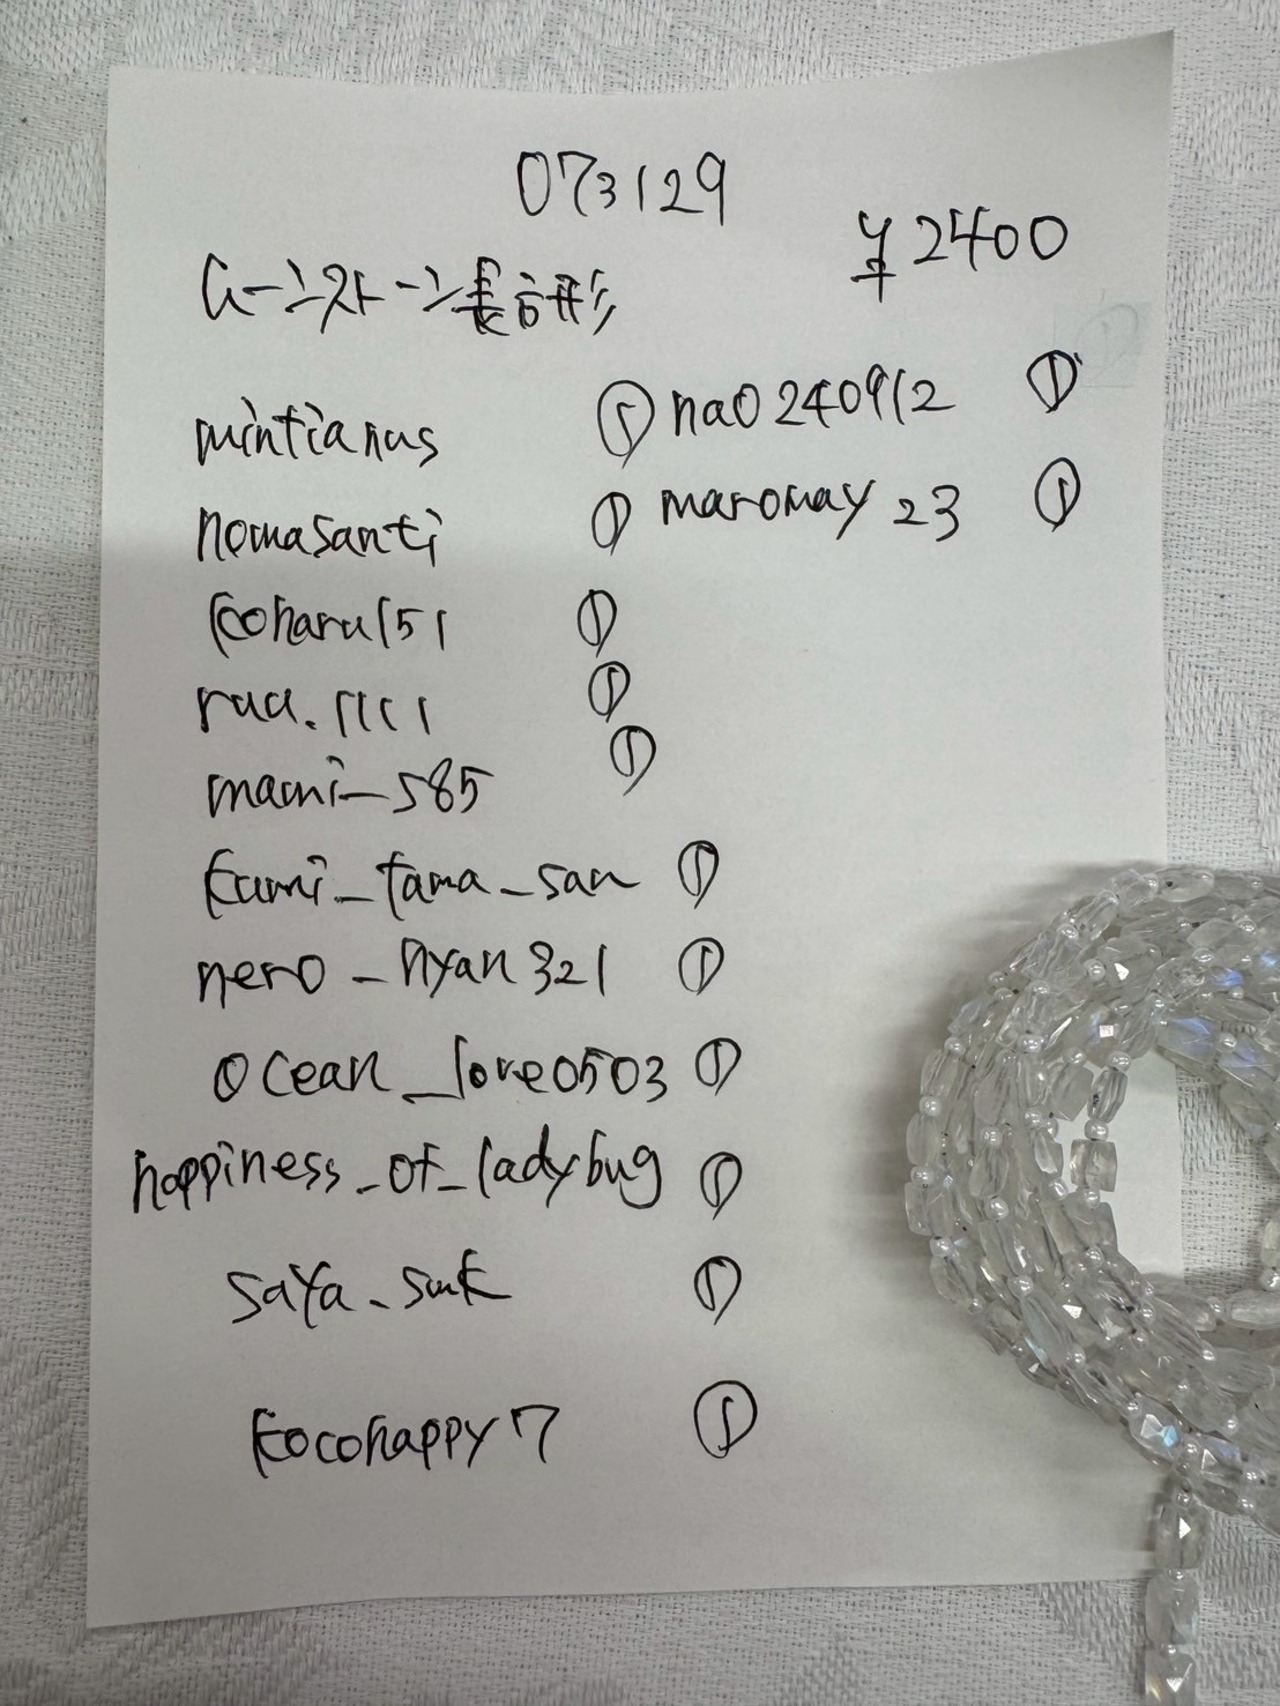 073129
¥2400
ムーンストーン長方形
mintianus ①
nao240912 ①
nomasanti ①
maromay23 ①
koharu151 ①
rua.1111 ①
mami_585 ①
kumi_tama_san ①
nero_nyan321 ①
ocean_love0503 ①
happiness_of_ladybug ①
saya_smk ①
kocohappy7 ①